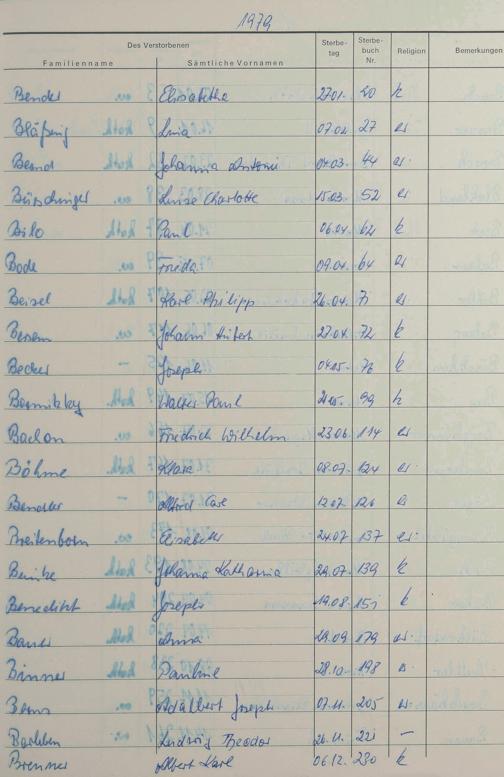 1979
Des Verstorbenen Sterbe-tag Sterbe-buch Nr. Religion Bemerkungen
Familienname Sämtliche Vornamen
Bender Elisabetha 27.01. 20 k
Bläßing 07.02. 27 ev
Johanna 04.03. 44 ev.
Bürschinger Luise Charlotte 15.03. 52 ev
Bilo Paul 06.04. 62 k
Bode Frieda 09.04. 64 ev
Beisel Karl Philipp 26.04. 71 ev.
Johann Hubert 27.04. 72 k
Becker Joseph 04.05. 76 k
Walter Paul 99 k
Bachon Friedrich Wilhelm 23.06. 114 ev
Böhme Klara 08.07. 124 ev.
Bendler Alfred Carl 12.07. 126
Breitenborn Elisabeth 24.07. 137 ev.
Johanna Katharina 29.07. 139 k
Benedikt Joseph 19.08. 151 k
Bauer Anna 29.09. 179 ev.
Binner Pauline 28.10. 198
Adalbert Joseph 07.11. 205 ev.
Barleben Ludwig Theodor 26.11. 221 –
Brenner Albert Karl 06.12. 230 k